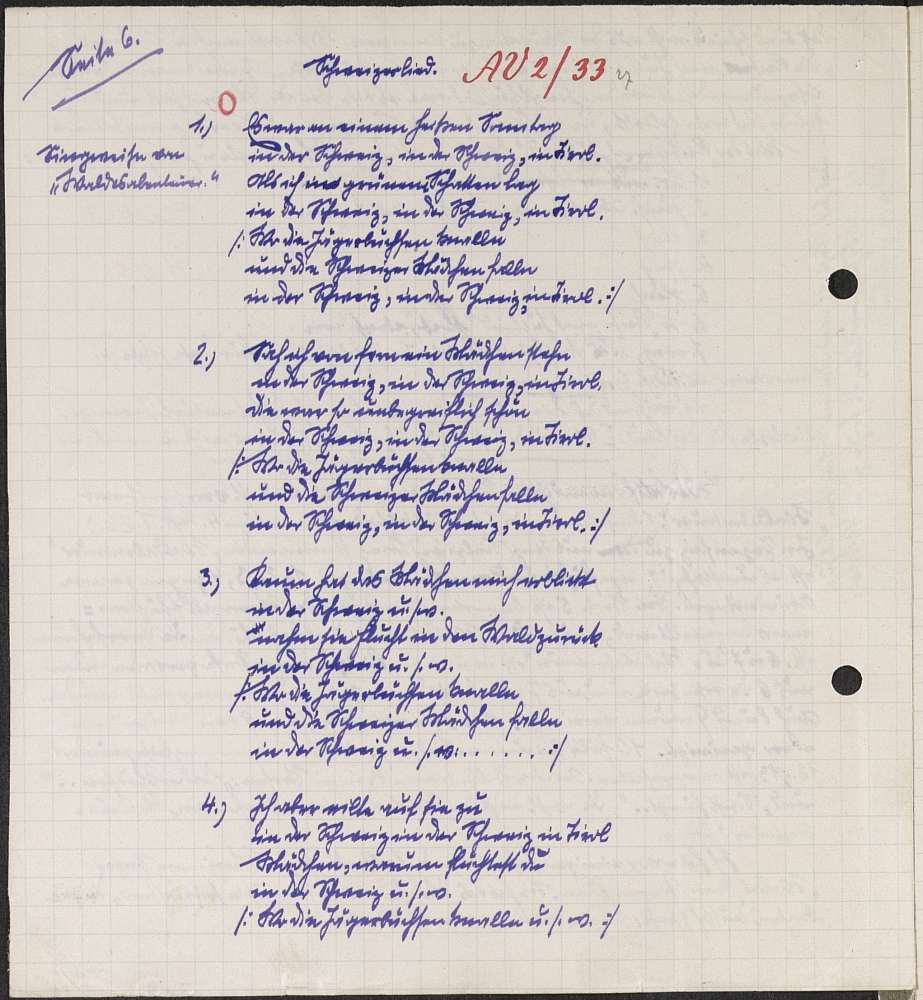 Seite 6.
Schweizerlied. AV 2/33 27
1.) Es war an einem heißen Sonntag
Singweise von
in der Schweiz, in der Schweiz, in Tirol.
„Waldesabenteuer."
Als ich im grünen Schatten lag
in der Schweiz, in der Schweiz, in Tirol.
/: Wo die Jägerbüchsen knalln
und die Schweizer Mädchen falln
in der Schweiz, in der Schweiz, in Tirol. :/
2.) Sah ich von fern ein Mädchen stehn
in der Schweiz, in der Schweiz, in Tirol.
die war so unbegreiflich schön
in der Schweiz, in der Schweiz, in Tirol.
/: Wo die Jägerbüchsen knalln
und die Schweizer Mädchen falln
in der Schweiz, in der Schweiz, in Tirol. :/
3.) Kaum hat das Mädchen mich erblickt
in der Schweiz u. s. w.
nahm sie Flucht in den Wald zurück
in der Schweiz u. s. w.
/: Wo die Jägerbüchsen knalln
und die Schweizer Mädchen falln
in der Schweiz u. s. w. . . . . . . :/
4.) Ich aber eilte auf sie zu
in der Schweiz in der Schweiz in Tirol
Mädchen, warum flüchtest du
in der Schweiz u. s. w.
/: Wo die Jägerbüchsen knalln u. s. w. :/